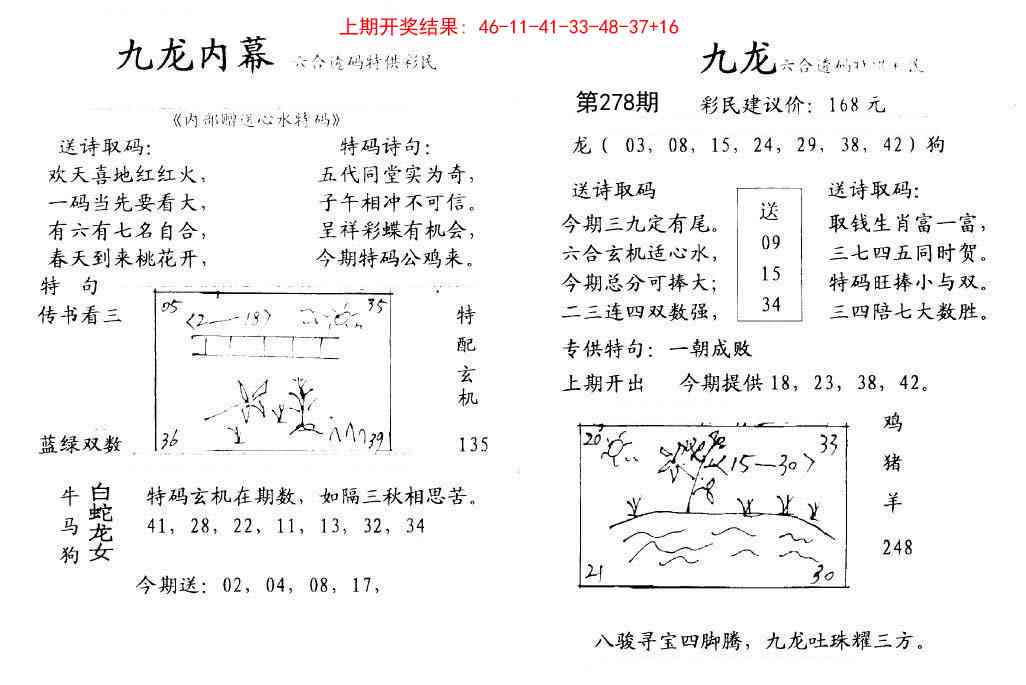 上期开奖结果：46-11-41-33-48-37+16
九龙内幕 六合透码特供彩民
《内部赠送心水特码》
送诗取码：
欢天喜地红红火，
一码当先要看大，
有六有七名自合，
春天到来桃花开，
特码诗句：
五代同堂实为奇，
子午相冲不可信。
呈祥彩蝶有机会，
今期特码公鸡来。
特 句
传书看三
蓝绿双数
05 35
<2—18>
36 39
特
配
玄
机
135
牛
马
狗
白蛇龙女
特码玄机在期数，如隔三秋相思苦。
41，28，22，11，13，32，34
今期送：02，04，08，17，
九龙 六合透码特供彩民
第278期 彩民建议价：168元
龙（ 03，08，15，24，29，38，42）狗
送诗取码
今期三九定有尾。
六合玄机适心水，
今期总分可捧大；
二三连四双数强，
送
09
15
34
送诗取码：
取钱生肖富一富，
三七四五同时贺。
特码旺捧小与双。
三四陪七大数胜。
专供特句：一朝成败
上期开出 今期提供18，23，38，42。
20 33
<15—30>
21 30
鸡
猪
羊
248
八骏寻宝四脚腾，九龙吐珠耀三方。